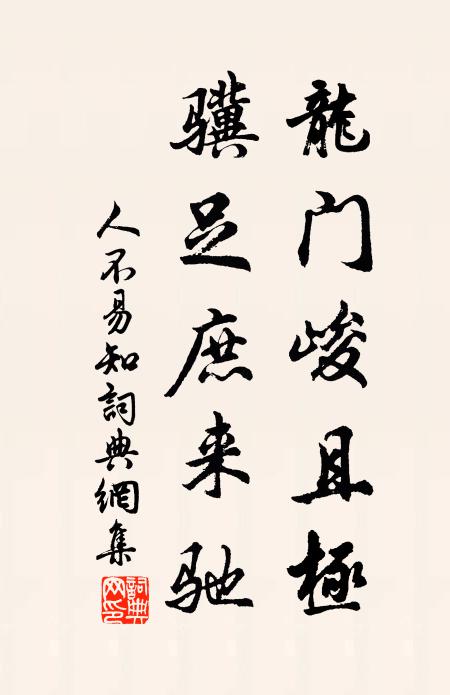 龍门峻且極
骥足庶来驰
人不易知詞典網集
詞典网印